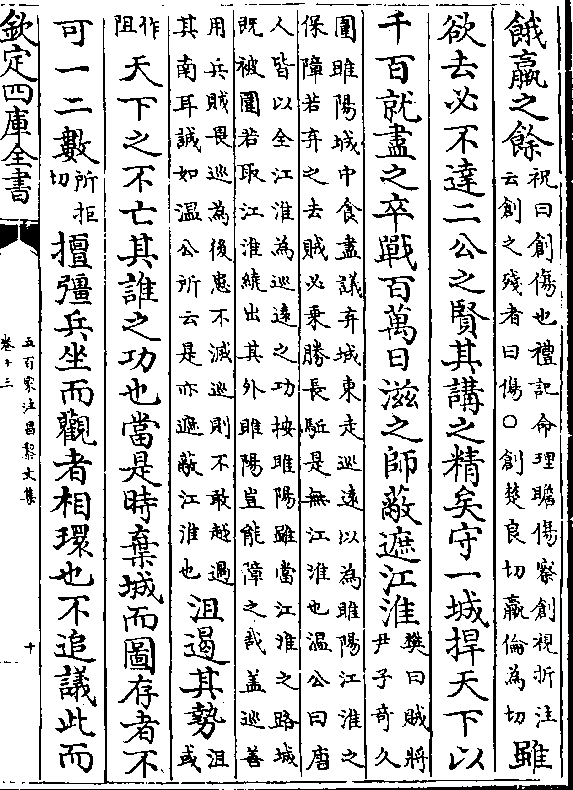 餓羸之餘祝曰創傷也禮記命理瞻傷察創視折注
云創之殘者曰傷○創楚良切羸倫為切雖
欲去必不達二公之賢其講之精矣守一城捍天下以
千百就盡之卒戰百萬日滋之師蔽遮江淮樊曰賊將
尹子奇久
圍睢陽城中食盡議弃城東走巡遠以為睢陽江淮之
保障若弃之去賊必乘勝長驅是無江淮也溫公曰唐
人皆以全江淮為巡遠之功按睢陽雖當江淮之路城
既被圍若取江淮繞出其外睢陽豈能障之哉盖巡善
用兵賊畏巡為後患不滅巡則不敢越過
其南耳誠如溫公所云是亦遮蔽江淮也沮遏其勢沮
或
作
阻天下之不亡其誰之功也當是時棄城而圖存者不
可一二數所拒
切擅彊兵坐而觀者相環也不追議此而
欽定四庫全書
五百家注昌黎文集
卷十三
十